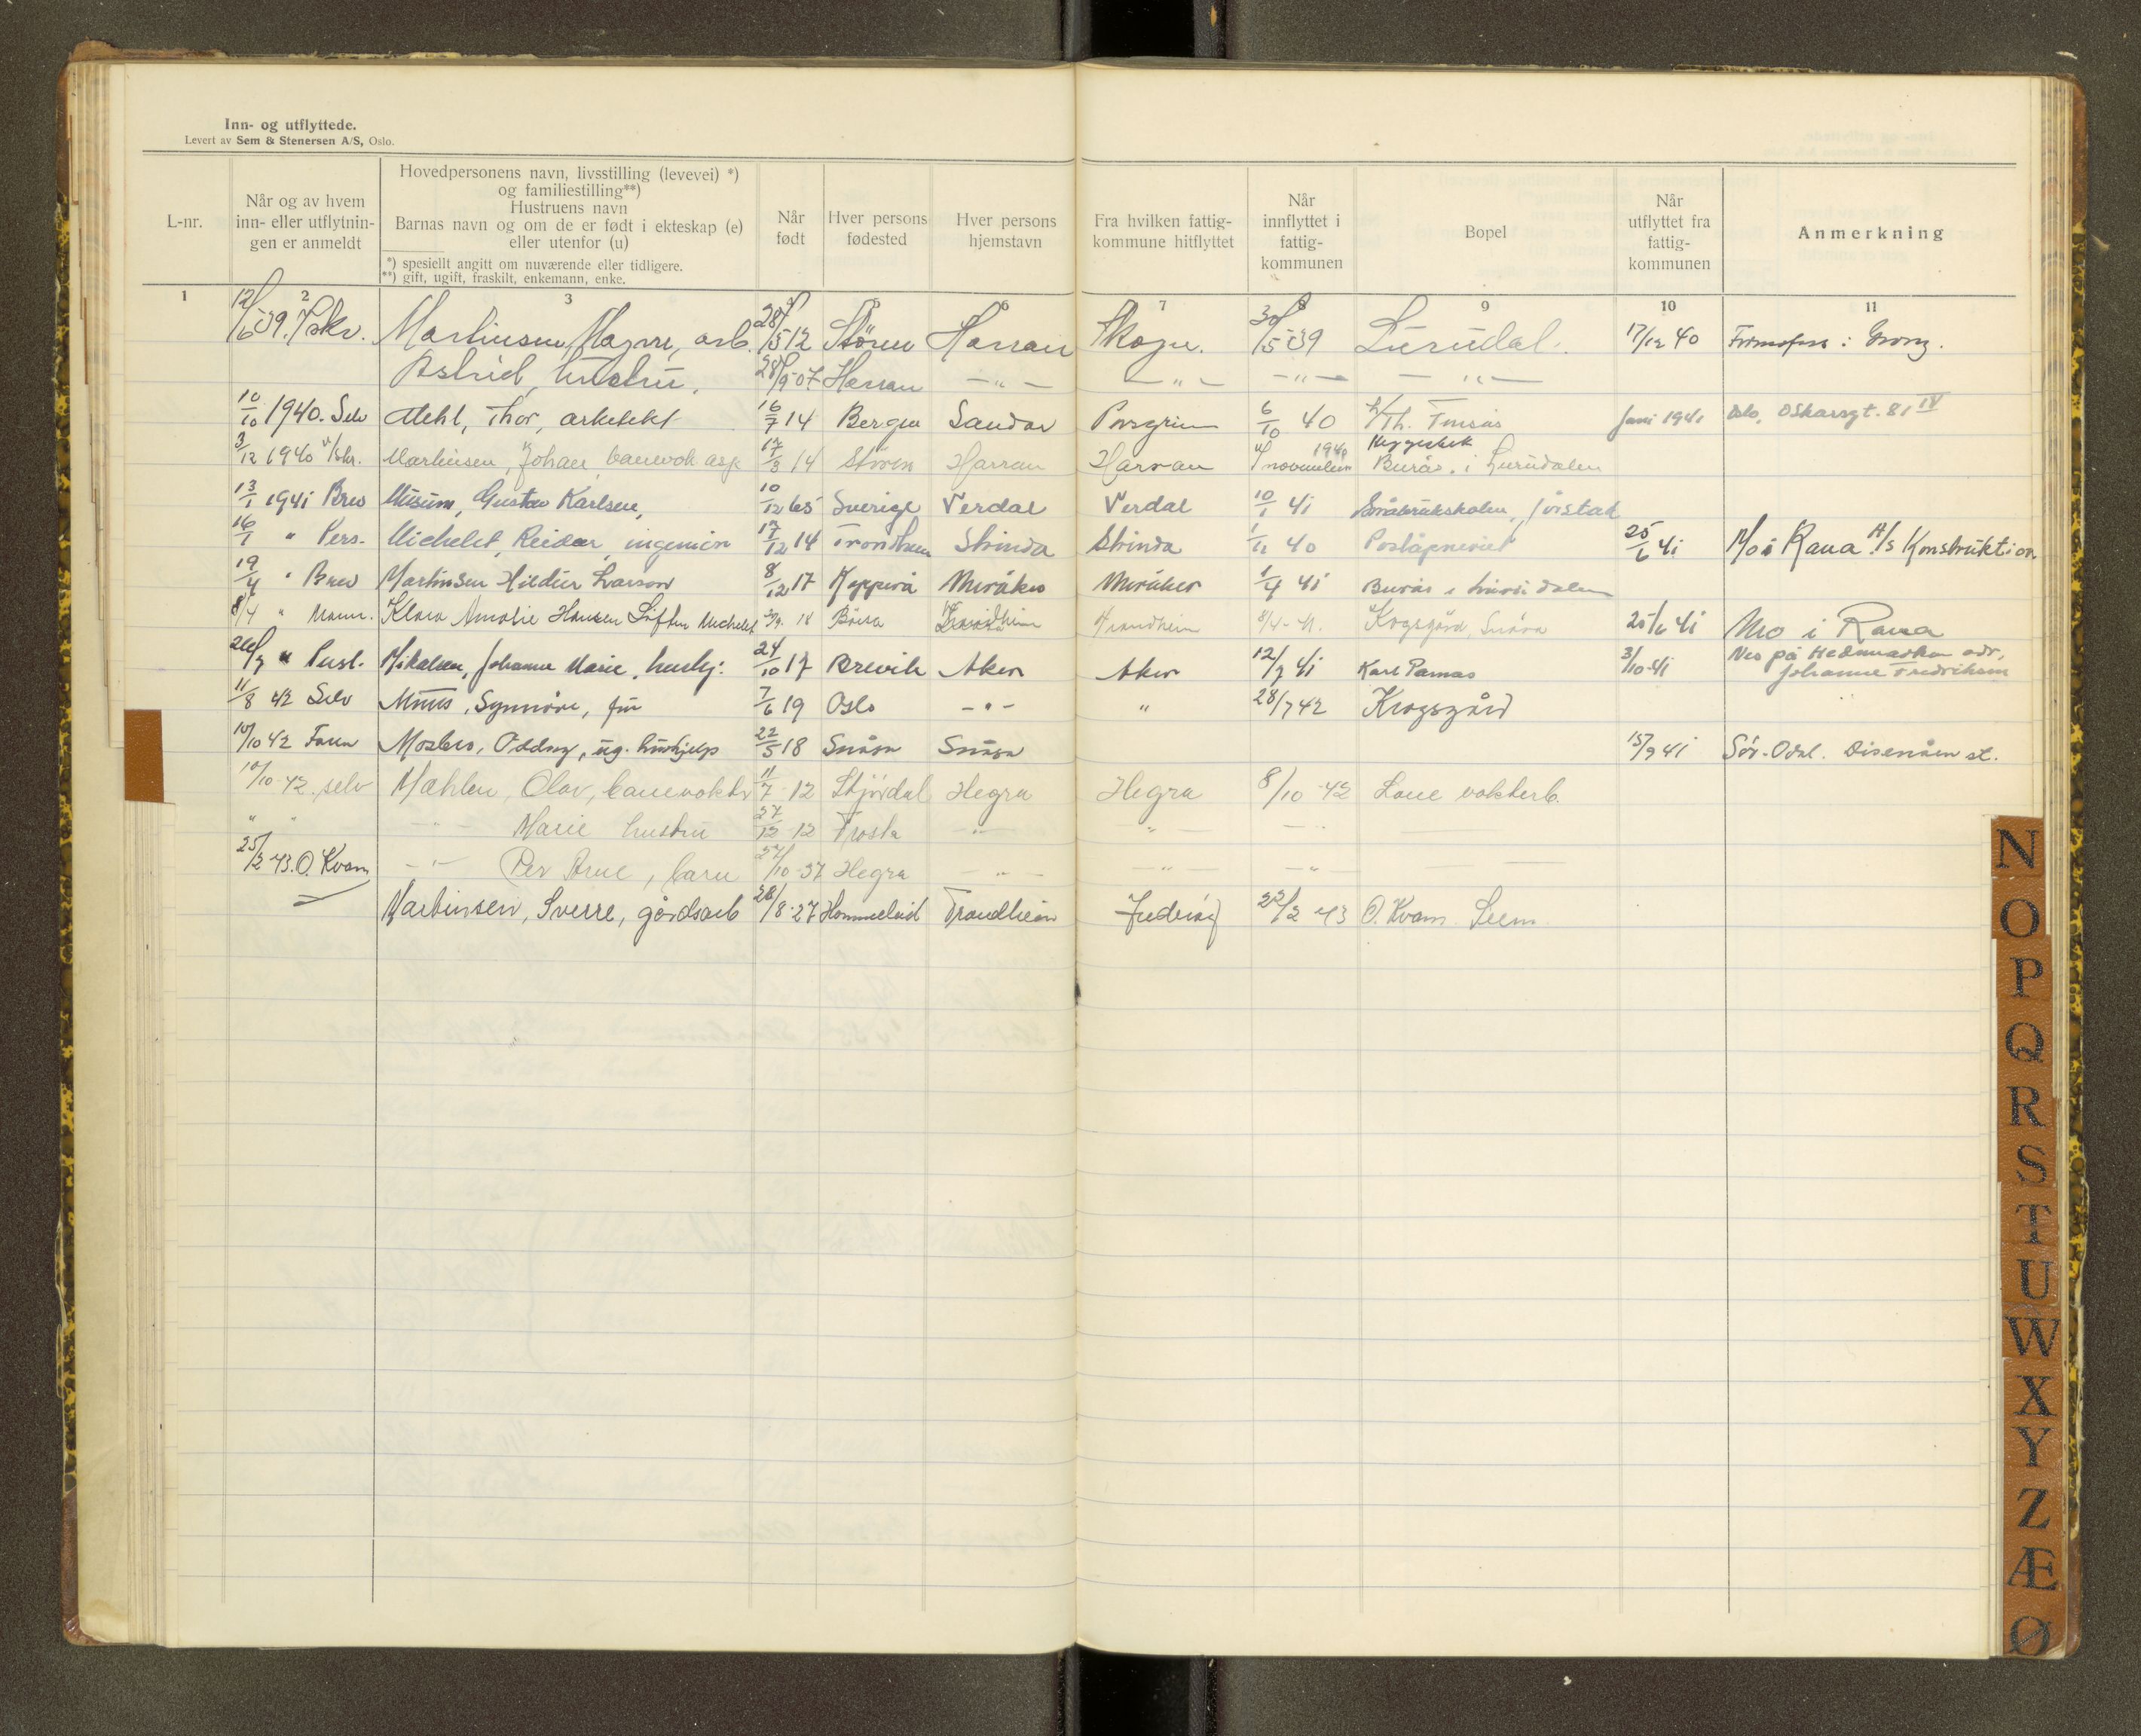 Inn- og utflyttede.
Levert av Sem & Stenersen A/S, Oslo.
L-nr.
Når og av hvem
inn- eller utflytnin-
gen er anmeldt
Hovedpersonens navn, livsstilling (levevei) *)
og familiestilling**)
Hustruens navn
Barnas navn og om de er født i ekteskap (e)
eller utenfor (u)
*) spesiellt angitt om nuværende eller tidligere.
**) gift, ugift, fraskilt, enkemann, enke.
Når
født
Hver persons
fødested
Hver persons
hjemstavn
Fra hvilken fattig-
kommune hitflyttet
Når
innflyttet i
fattig-
kommunen
Bopel
Når
utflyttet fra
fattig-
kommunen
Anmerkning
1 2 3 5 6 7 8 9 10 11
12/6 39. Martinsen, Magne, arb. 28/5 12 Støren Harran Skogn. 30/5 39 Lurudal. 17/12 40 Formofoss i Grong.
Astrid, hustru. 28/9-07 Harran — " — — " — — " — — " —
10/10 1940. Selv Mehl, Thor, arkitekt 16/7 14 Bergen Sandar Porsgrunn 6/10 40 Th. Finsås Juni 1941 Oslo, Oskarsgt. 81 IV
3/12 1940 Martinsen, Johan, banevok. asp. 17/3 14 Støren Harran Harran november 1940 Burås i Lurudalen
13/1 1941 Brev Musum, Gustav Karlsen, 10/12 65 Sverige Verdal Verdal 10/1 41 Småbrukskolen, Jørstad
16/1 " Pers. Michelet, Reidar, ingeniør 17/12 14 Trondheim Strinda Strinda 1/11 40 Poståpneriet 25/6 41 Mo i Rana A/S Konstruktion
19/4 " Brev Martinsen Hildur Larson 8/12 17 Kopperå Meråker Meråker 1/4 41 Burås i Lurudalen
8/4 " Mann. Klara Amalie Hansen Løften Michelet 18 Børsa Trondheim Trondheim 8/4-41. Krogsgård, Snåsa 25/6 41 Mo i Rana
26/7 " Mikalsen, Johanne Marie, hushj. 24/10 17 Brevik Aker Aker 12/7 41 Karl Parnas 3/10-41 Nes på Hedmarken adr,
Johanne Fredriksen
11/8 42 Selv Synnøve, fru 7/6 19 Oslo — " — " 28/7 42 Krogsgård
10/10 42 Faren Mosbro, Oddny, ug. hushjelp 22/5 18 Snåsa Snåsa 15/9 41 Sør-Odal. Disenåen st.
10/10-42. selv Mæhlen, Olav, banevokter 11/7-12 Stjørdal Hegra Hegra 8/10-42 vokterb.
" " — " — Marie hustru 27/12-12 Frosta — " — " — — " —
25/2 43. O. Kvam — " — Per Arne, barn 10-37 Hegra — " — — " — — " —
Martinsen, Sverre, gårdsarb 28/8-27 Hommelvik Trondheim Inderøy 22/2 43 O. Kvam Seem
N
O
P
Q
R
S
T
U
W
X
Y
Z
Æ
Ø